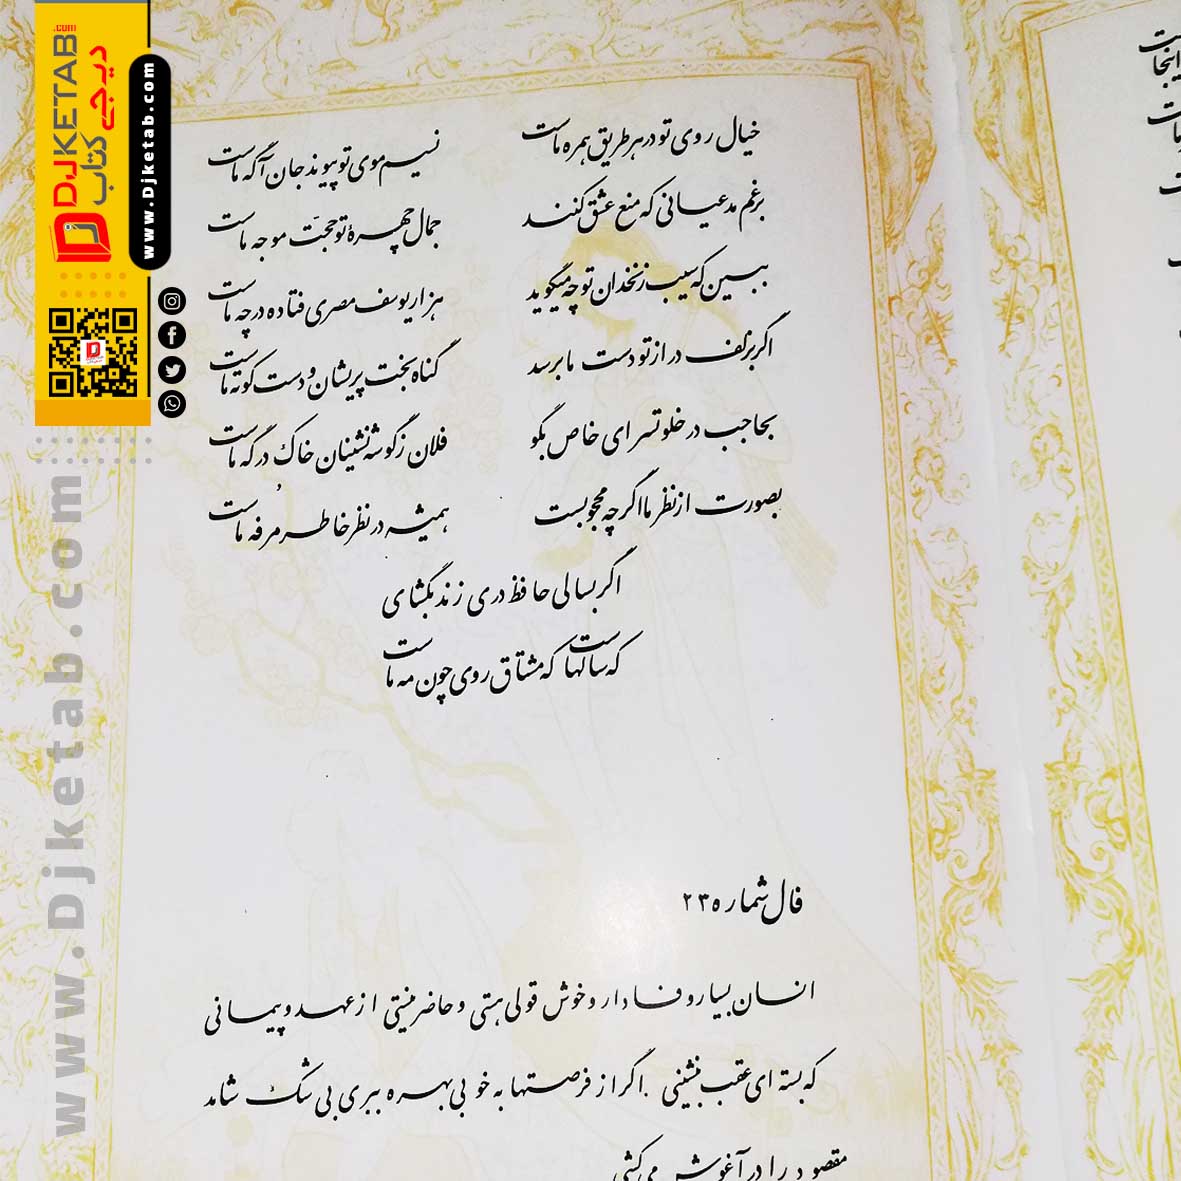 DJKETAB.com
دی‌جی کتاب
www.Djketab.com
www.Djketab.com
خیال روی تو در هر طریق همره ماست
نسیم موی تو پیوند جان آگه ماست
برغم مدعیانی که منع عشق کنند
جمال چهرهٔ تو حجت موجه ماست
ببین که سیب زنخدان تو چه میگوید
هزار یوسف مصری فتاده در چه ماست
اگر بزلف دراز تو دست ما برسد
گناه بخت پریشان و دست کوته ماست
بحاجب در خلوتسرای خاص بگو
فلان ز گوشه نشینان خاک درگه ماست
بصورت از نظر ما اگر چه محجوبست
همیشه در نظر خاطر مرفه ماست
اگر بسالی حافظ دری زند بگشای
که سالهاست که مشتاق روی چون مه ماست
فال شماره ۲۳
انسان بسیار وفادار و خوش قولی هستی و حاضر نیستی از عهد و پیمانی
که بسته ای عقب بنشینی . اگر از فرصتها به خوبی بهره ببری بی شک شاهد
مقصود را در آغوش می کشی